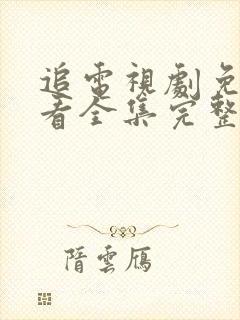 追電視劇免
看全集完整
隋雲鴈